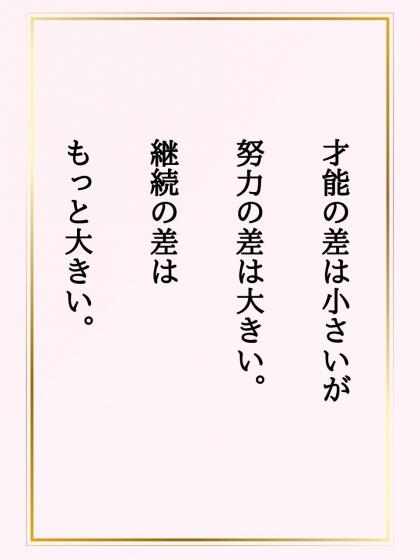 才能の差は小さいが
努力の差は大きい。
継続の差は
もっと大きい。